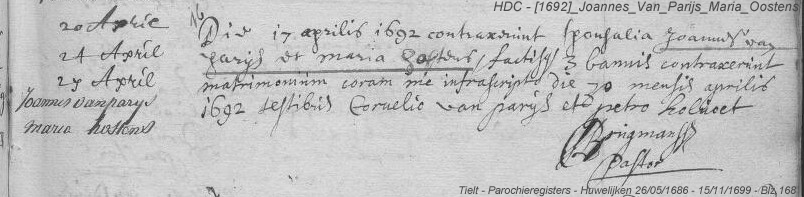 HDC - [1692]_Joannes_Van_Parijs_Maria_Oostens
20 April
24 April
27 April
Joannes van parys
maria hostens
16
Die 17 aprilis 1692 contraxerunt sponsalia Joannes van
parys et maria hostens, factisq 3 bannis contraxerunt
matrimonium coram me infrascripto die 30 mensis aprilis
1692 testibus Cornelio van parys et petro holvoet
Brugmans
Pastor
Tielt - Parochieregisters - Huwelijken 26/05/1686 - 15/11/1699 - Blz 168